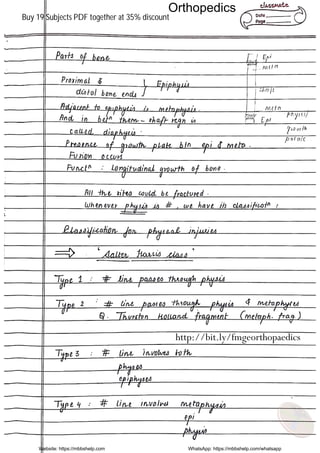 Orthopedics
classmate
Date
Page
Buy 19 Subjects PDF together at 35% discount
Parts of bone
Epi
metn
diaph
metn
Epi
physis/
growth
plate
Proximal &
distal bone ends } Epiphysis
Adjacent to epiphysis is metaphysis.
And in betn them - shaft regn is
called diaphysis.
Presence of growth plate b/n epi & meta.
Fusion occurs
Functn : Longitudinal growth of bone.
All the sites could be fractured.
Whenever physis is #, we have its classificatn :
Classification for physeal injuries
⇒ ' Salter Harris class '
Type 1 : # line passes through physis
Type 2 : # line passes through physis & metaphyses
Q. Thurston Holland fragment (metaph. frag)
http://bit.ly/fmgeorthopaedics
Type 3 : # line involves both
physes
epiphyses
Type 4 : # line involves metaphysis
epi
physis
Website: https://mbbshelp.com
WhatsApp: https://mbbshelp.com/whatsapp